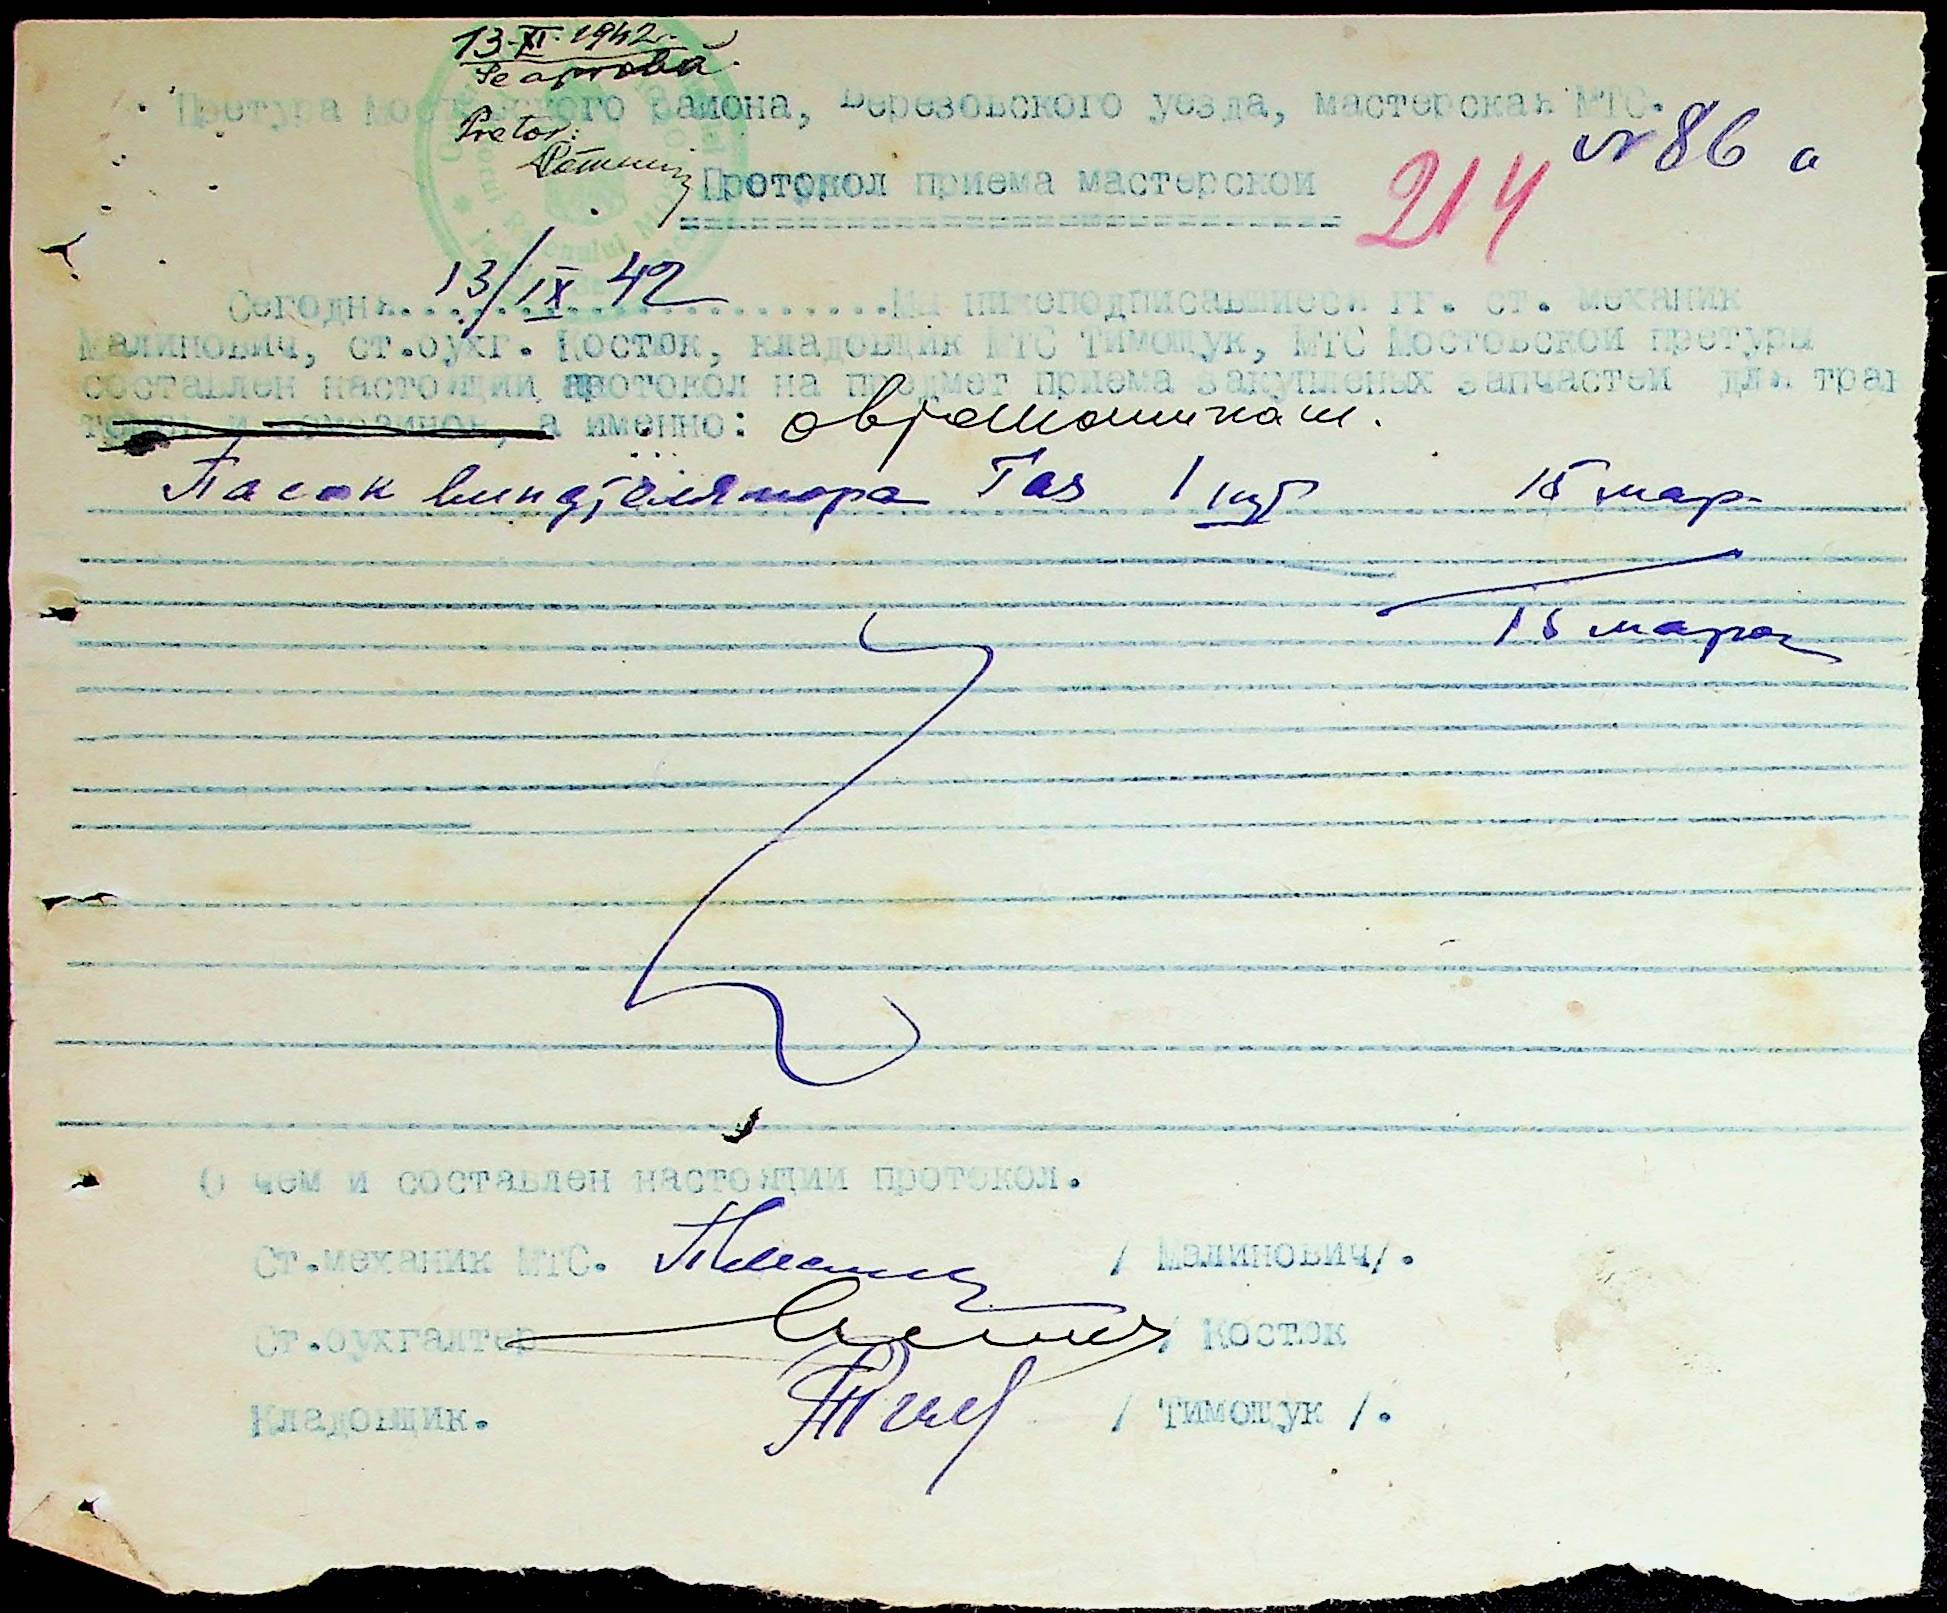 13-XI-1942.
Se aprobă.
Претура Мостовского района, Березовского уезда, мастерская МТС.
Pretor:
№ 86 а
214
Протокол приема мастерской
Сегодня 13/IX 42 Мы нижеподписавшиеся гг. ст. механик
Малинович, ст.бухг. Костюк, кладовщик МТС Тимощук, МТС Мостовской претуры
составлен настоящий протокол на предмет приема закупленых запчастей для трак
а именно: автомашинам.
Пасок виндтелятора Газ 1 шт 15 мар.
15 марок
О чем и составлен настоящий протокол.
Ст.механик МТС. / Малинович/.
Ст.бухгалтер / Костюк
Кладовщик. / Тимощук /.